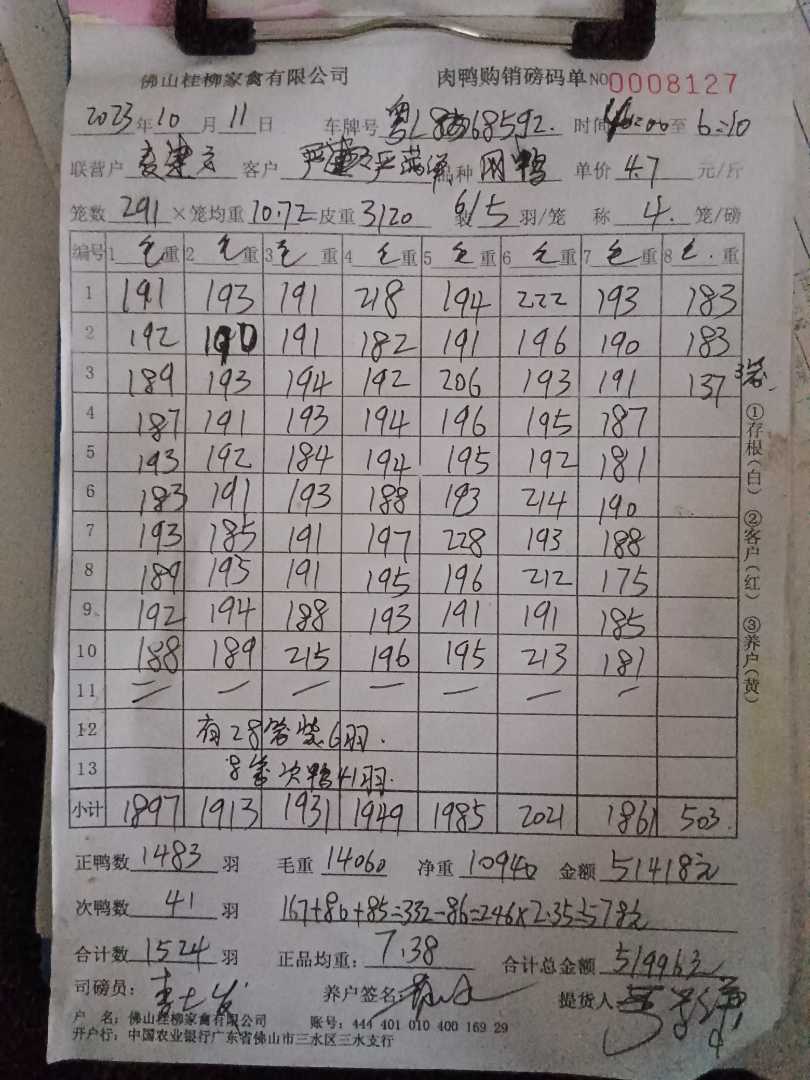 佛山桂柳家禽有限公司 肉鸭购销磅码单 NO 0008127
2023年10月11日 车牌号 粤L 68592. 时间 至 6:10
联营户 客户 品种 鸭 单价 4.7 元/斤
笼数 291 ×笼均重 10.72 皮重 3120 装 6/5 羽/笼 称 4. 笼/磅
编号 1 毛重 2 毛重 3 毛重 4 毛重 5 毛重 6 毛重 7 毛重 8 毛.重
1 191 193 191 218 194 222 193 183
2 192 190 191 182 191 196 190 183
3 189 193 194 192 206 193 191 137 3笼
4 187 191 193 194 196 195 187
5 193 192 184 194 195 192 181
6 183 191 193 188 193 214 190
7 193 185 191 197 228 193 188
8 189 195 191 195 196 212 175
9 192 194 188 193 191 191 185
10 188 189 215 196 195 213 181
11 = — — — — — —
12 有28笼装6羽.
13 8笼次鸭41羽.
小计 1897 1913 1931 1949 1985 2021 1861 503.
正鸭数 1483 羽 毛重 14060 净重 10940 金额 51418元
次鸭数 41 羽 167+80+85=332-86=246×2.35=578元
合计数 1524 羽 正品均重: 7.38 合计总金额 51996元
司磅员: 养户签名: 提货人
户 名: 佛山桂柳家禽有限公司 账号: 444 401 010 400 169 29
开户行: 中国农业银行广东省佛山市三水区三水支行
①存根(白) ②客户(红) ③养户(黄)